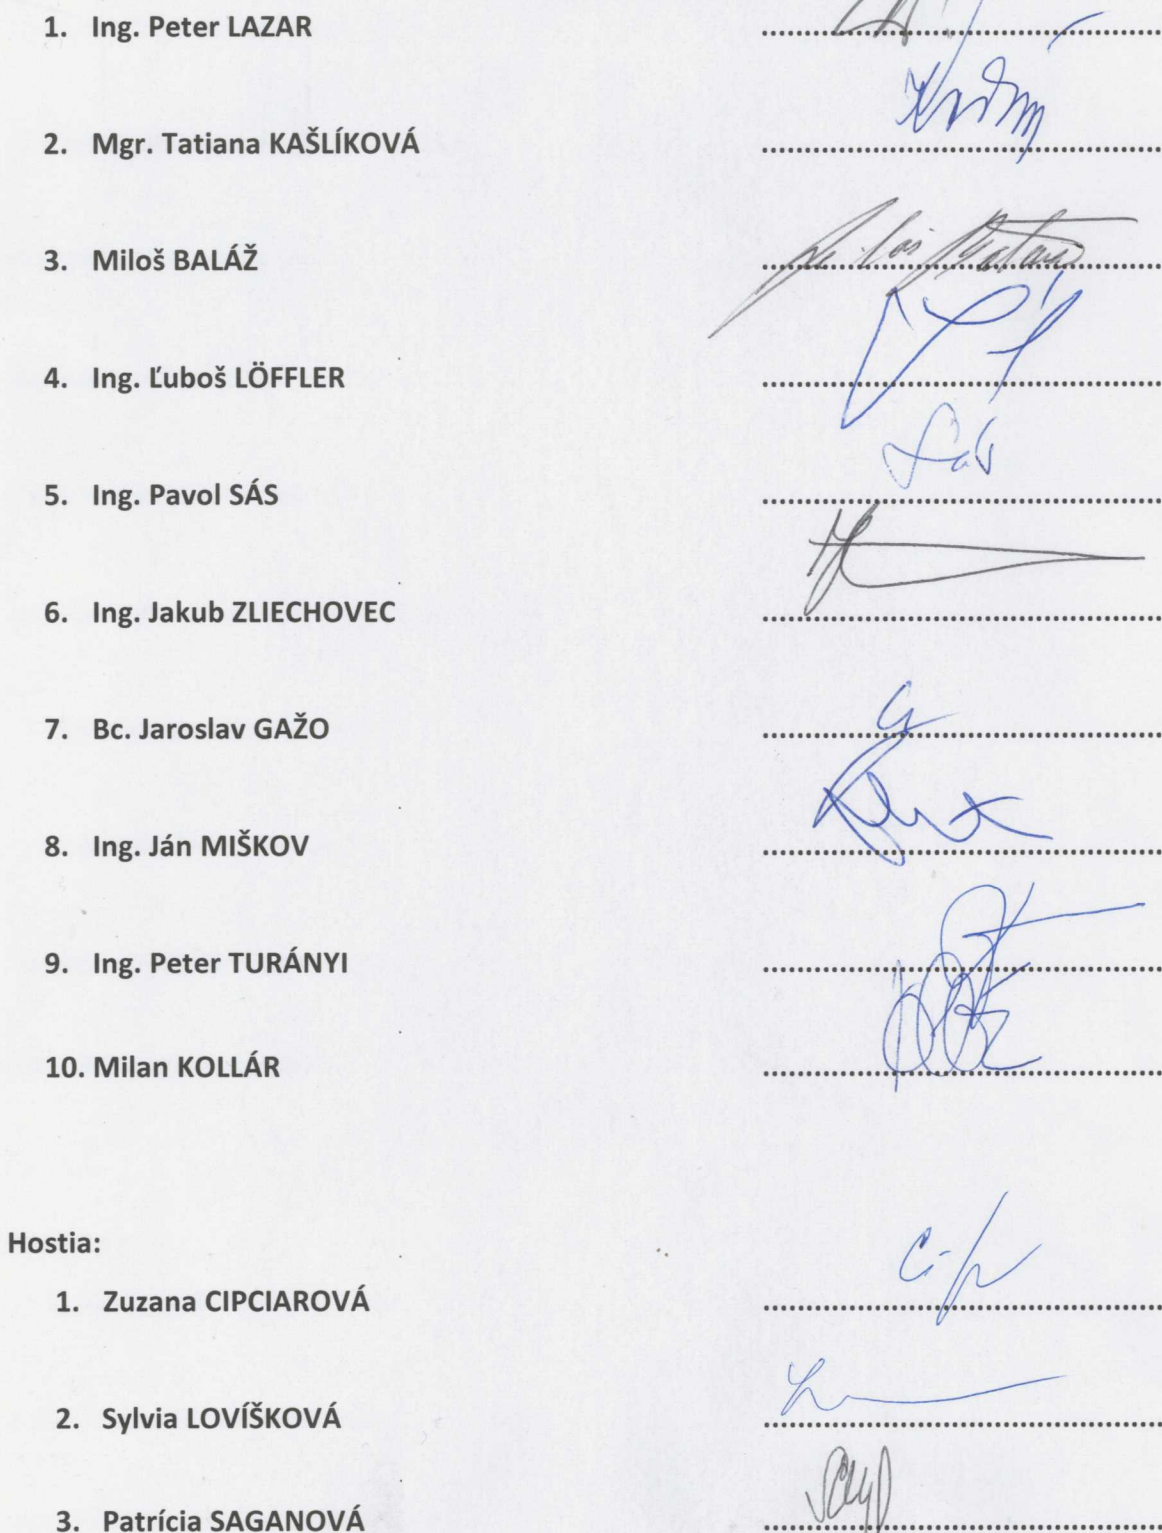 1. Ing. Peter LAZAR ........................................
2. Mgr. Tatiana KAŠLÍKOVÁ ........................................
3. Miloš BALÁŽ ........................................
4. Ing. Ľuboš LÖFFLER ........................................
5. Ing. Pavol SÁS ........................................
6. Ing. Jakub ZLIECHOVEC ........................................
7. Bc. Jaroslav GAŽO ........................................
8. Ing. Ján MIŠKOV ........................................
9. Ing. Peter TURÁNYI ........................................
10. Milan KOLLÁR ........................................
Hostia:
1. Zuzana CIPCIAROVÁ ........................................
2. Sylvia LOVÍŠKOVÁ ........................................
3. Patrícia SAGANOVÁ ........................................